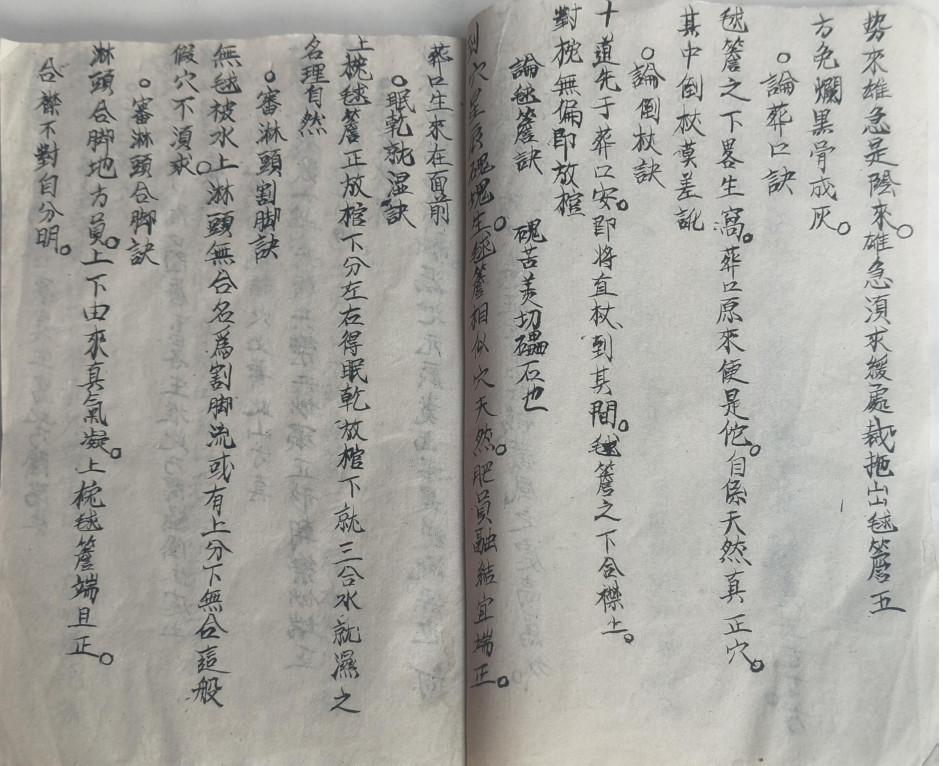 勢來雄急是陰來。雄急須求緩處裁拖出毬簷五
方免爛黑骨成灰。
。論葬口訣
毬簷之下畧生窩。葬口原來便是佗。自係天然真正穴。
其中倒杖莫差訛
。論倒杖訣
十道先于葬口安。即將直杖到其間。毬簷之下合襟上。
對枕無偏即放棺
論毬簷訣 磈苦羙切礧石也
穴星辰磈磈生。毬簷相似穴天然。肥員融結宜端正。
葬口生來在面前
。眠乾就湿訣
上枕毬簷正放棺下分左右得眠乾放棺下就三合水就濕之
名理有然
。審淋頭割脚訣
無毬被水上淋頭無合名爲割脚流或有上分下無合這般
假穴不須求
。審淋頭合脚訣
淋頭合脚地方員。上下由來真氣凝。上枕毬簷端且正。
合襟不對自分明。